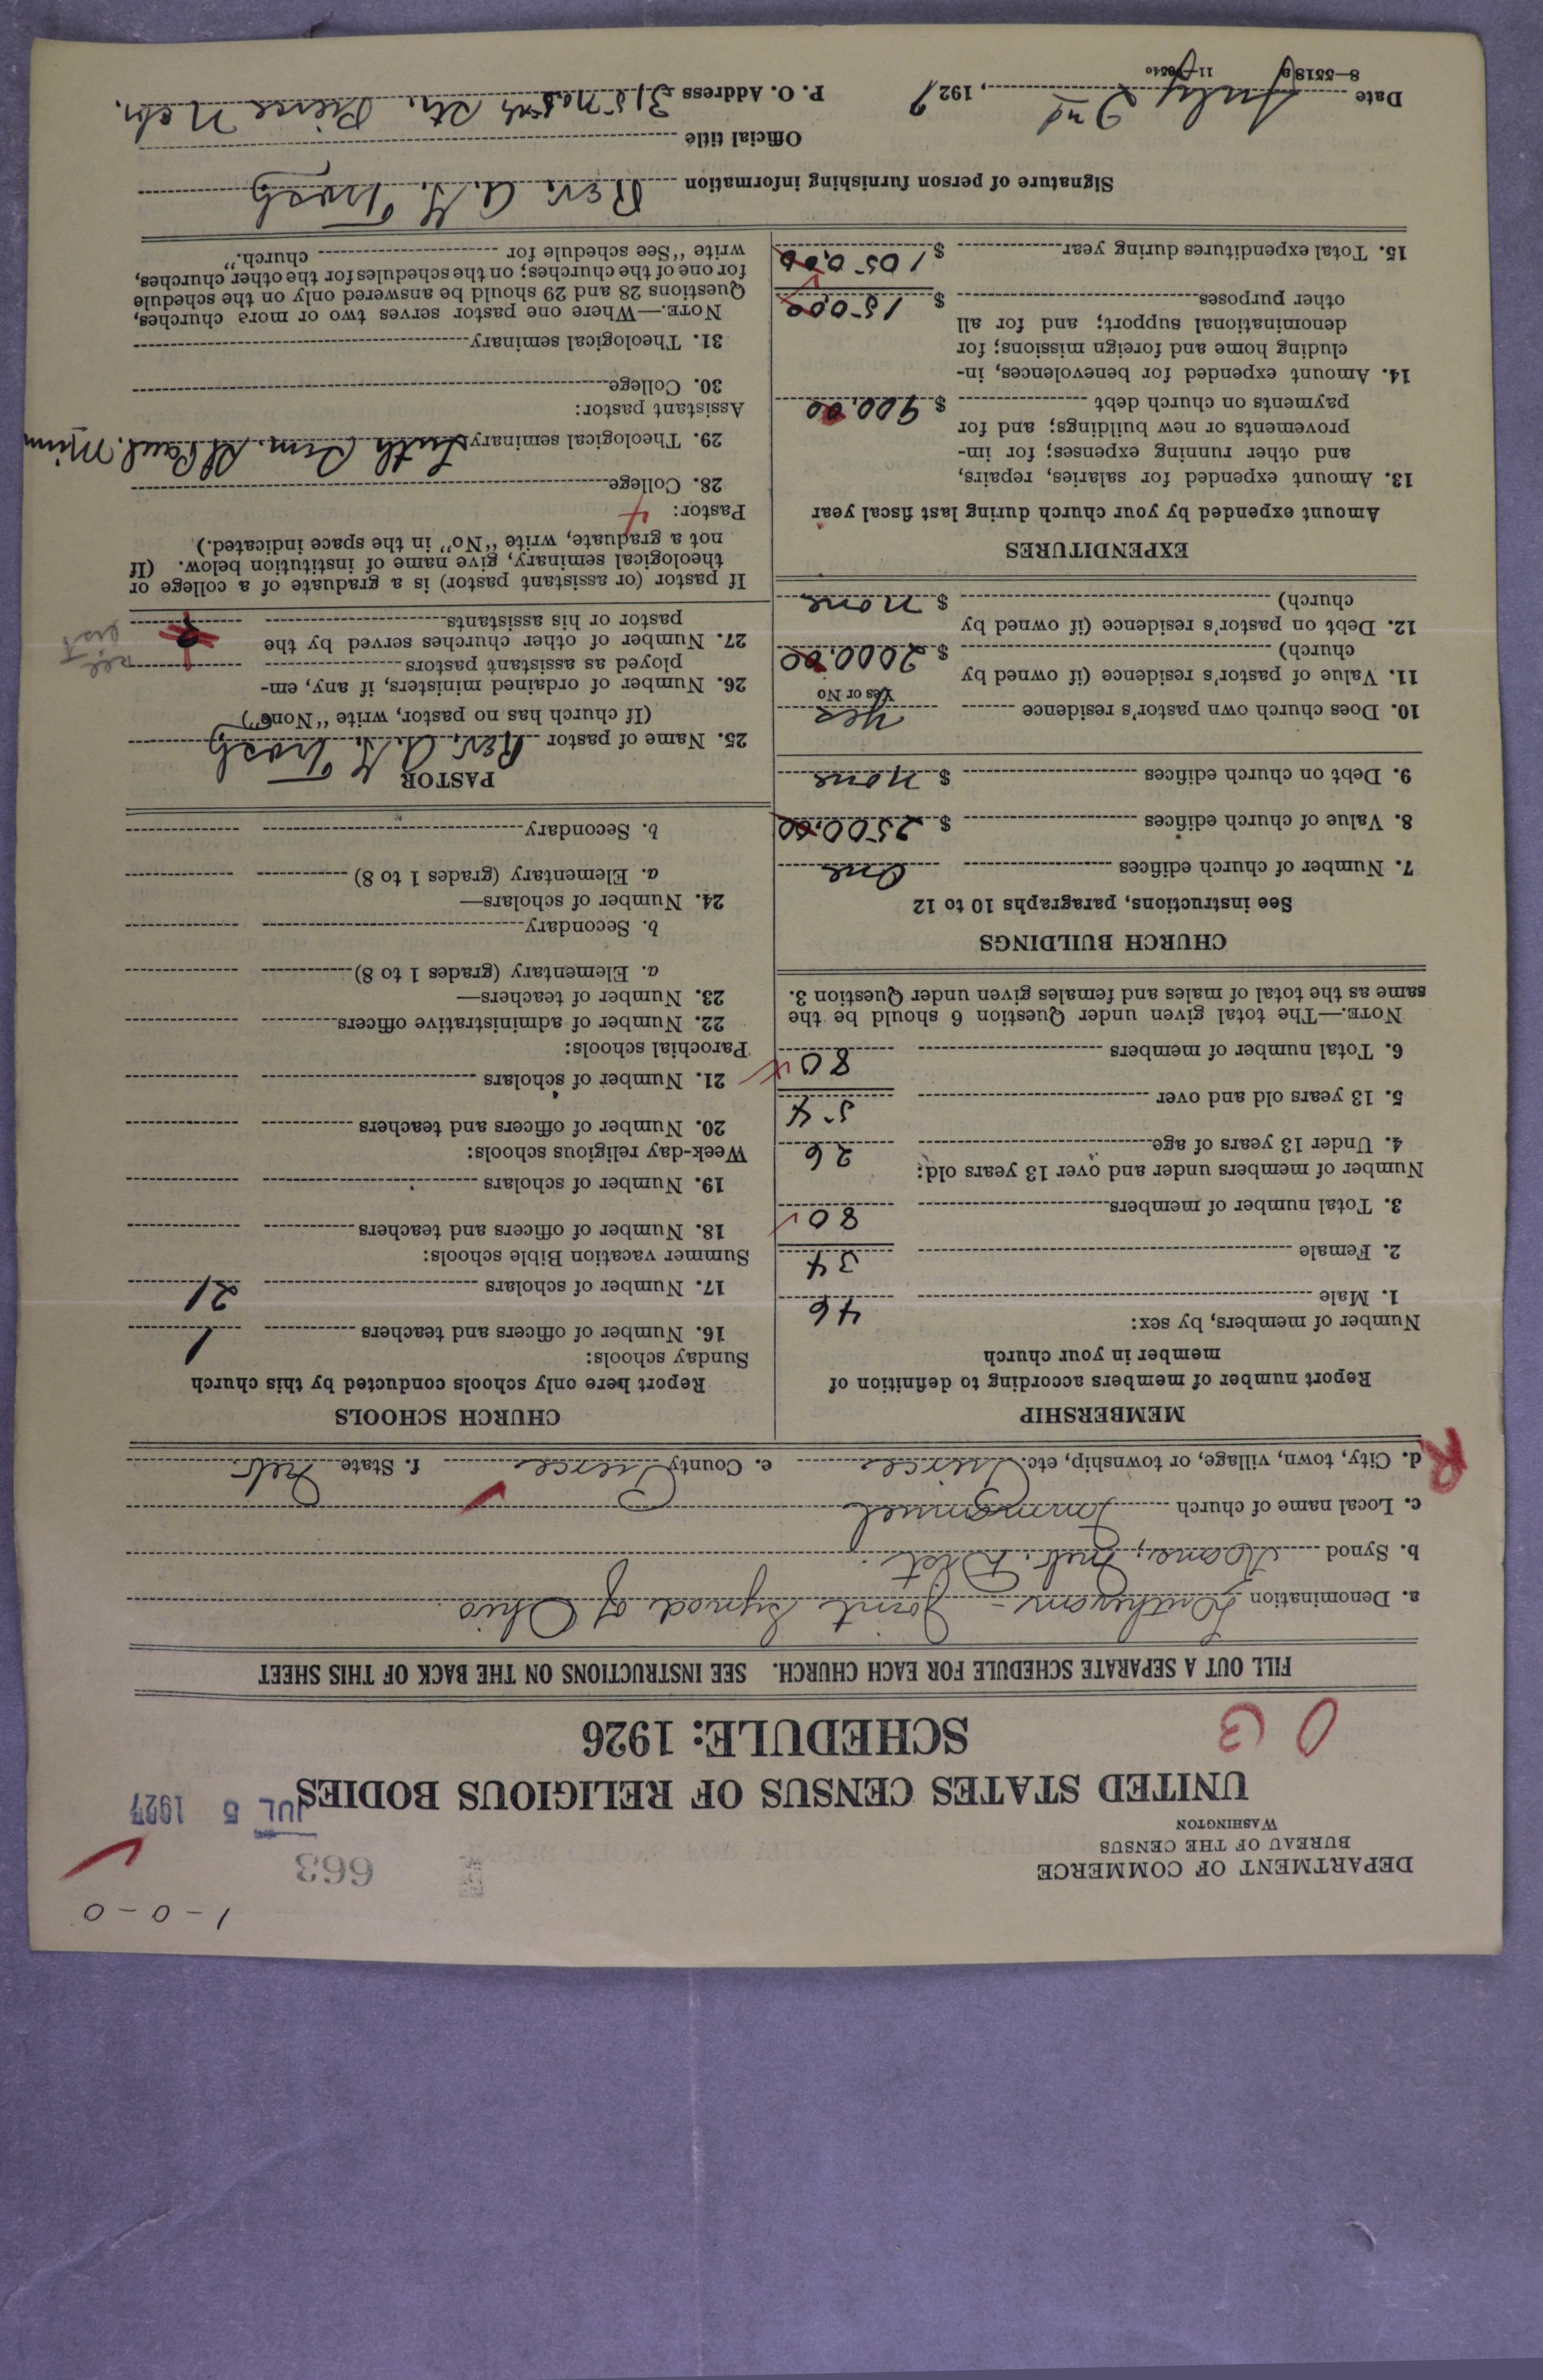 1-0-0
DEPARTMENT OF COMMERCE
BUREAU OF THE CENSUS
WASHINGTON
663
JUL 5 1927
UNITED STATES CENSUS OF RELIGIOUS BODIES
SCHEDULE: 1926
FILL OUT A SEPARATE SCHEDULE FOR EACH CHURCH. SEE INSTRUCTIONS ON THE BACK OF THIS SHEET
a. Denomination Lutheran - Joint Synod of Ohio
b. Synod Kans; Neb. Dist.
c. Local name of church Immanuel
d. City, town, village, or township, etc. Pierce e. County Pierce f. State Neb.
R
MEMBERSHIP
Report number of members according to definition of
member in your church
Number of members, by sex:
1. Male 46
2. Female 34
3. Total number of members 80
Number of members under and over 13 years old:
4. Under 13 years of age 26
5. 13 years old and over 54
6. Total number of members 80
NOTE.—The total given under Question 6 should be the
same as the total of males and females given under Question 3.
CHURCH BUILDINGS
See instructions, paragraphs 10 to 12
7. Number of church edifices One
8. Value of church edifices $ 2500.00
9. Debt on church edifices $ None
10. Does church own pastor's residence Yes
Yes or No
11. Value of pastor's residence (if owned by
church) $ 2000.00
12. Debt on pastor's residence (if owned by
church) $ None
EXPENDITURES
Amount expended by your church during last fiscal year
13. Amount expended for salaries, repairs,
and other running expenses; for im-
provements or new buildings; and for
payments on church debt $ 900.00
14. Amount expended for benevolences, in-
cluding home and foreign missions; for
denominational support; and for all
other purposes $ 150.00
15. Total expenditures during year $ 1050.00
CHURCH SCHOOLS
Report here only schools conducted by this church
Sunday schools:
16. Number of officers and teachers 1
17. Number of scholars 21
Summer vacation Bible schools:
18. Number of officers and teachers
19. Number of scholars
Week-day religious schools:
20. Number of officers and teachers
21. Number of scholars
Parochial schools:
22. Number of administrative officers
23. Number of teachers—
a. Elementary (grades 1 to 8)
b. Secondary
24. Number of scholars—
a. Elementary (grades 1 to 8)
b. Secondary
PASTOR
25. Name of pastor Rev. A. H.
(If church has no pastor, write "None")
26. Number of ordained ministers, if any, em-
ployed as assistant pastors
27. Number of other churches served by the
pastor or his assistants
If pastor (or assistant pastor) is a graduate of a college or
theological seminary, give name of institution below. (If
not a graduate, write "No" in the space indicated.)
Pastor:
28. College
29. Theological seminary Luth. Sem. St. Paul. Minn
Assistant pastor:
30. College
31. Theological seminary
NOTE.—Where one pastor serves two or more churches,
Questions 28 and 29 should be answered only on the schedule
for one of the churches; on the schedules for the other churches,
write "See schedule for church."
Signature of person furnishing information Rev. A. H.
Official title
Date July 2nd, 1927 P. O. Address Pierce Nebr.
8—5518a 11—